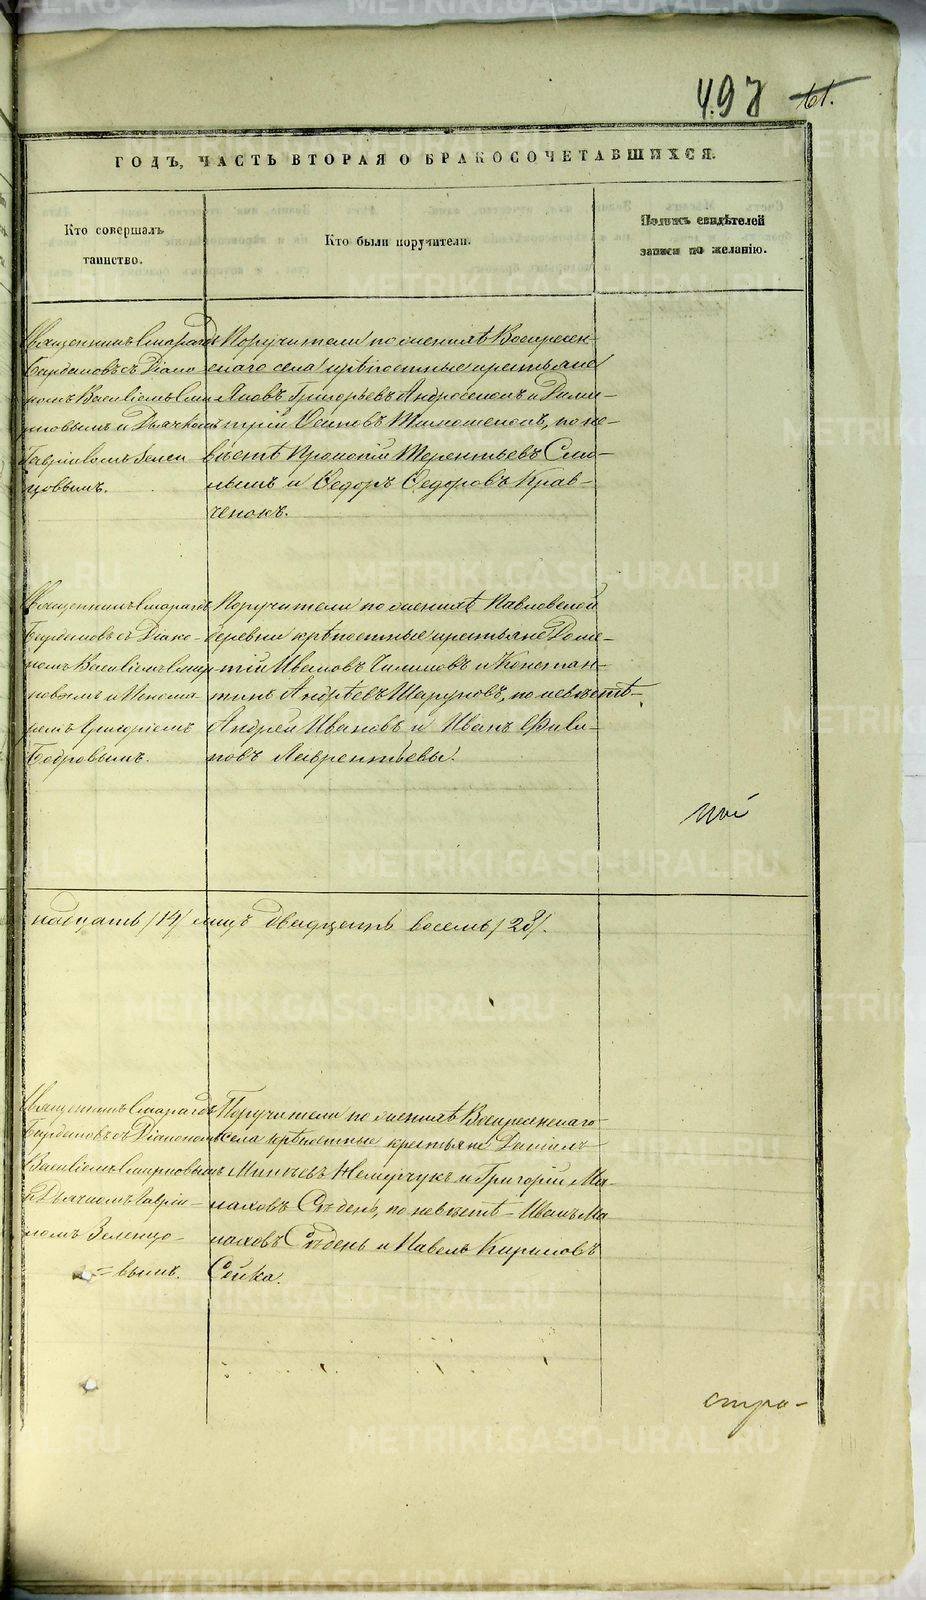 497 61.
ГОДЪ, ЧАСТЬ ВТОРАЯ О БРАКОСОЧЕТАВШИХСЯ.
Кто совершалъ
таинство.
Кто были поручители.
Подпись свидѣтелей
записи по желанію.
Священникъ Смарагдъ
Богдановъ съ Діако-
номъ Василіемъ Смир-
новымъ и Дьячкомъ
Гавріиломъ Зелен
цовымъ.
Поручители по женихѣ Воскресен-
скаго села крѣпостные крестьяне
Яковъ Григорьевъ и Дими-
трій Осиповъ Тимошенокъ, по не-
вѣстѣ Прокопій Терентьевъ
и Ѳедоръ Ѳедоровъ Крав-
ченокъ.
Священникъ Смарагдъ
Богдановъ съ Діако-
номъ Василіемъ Смир-
новымъ и Понома-
ремъ Григоріемъ
Бодровымъ.
Поручители по женихѣ Павловской
деревни крѣпостные крестьяне
Ивановъ и Констан-
тинъ Андреевъ Шаруновъ, по невѣстѣ-
Андрей Ивановъ и Иванъ Фили-
повъ Лаврентьевы.
надцать /14/ лицъ двадцать восемь /28/.
Священникъ Смарагдъ
Богдановъ съ Діакономъ
Василіемъ Смирновымъ
и Дьячкомъ Гаврiи-
ломъ Зеленцо-
= вымъ.
Поручители по женихѣ Воскресенскаго
села крѣпостные крестьяне Даніилъ
Нешурчукъ и Григорій Ма-
лаховъ Сѣдень, по невѣстѣ - Иванъ Ма
лаховъ Сѣдень и Павелъ Кириловъ
Сѣйка.
стра-
METRIKI.GASO-URAL.RU